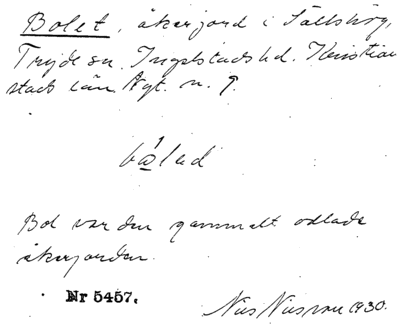 Bolet, åkerjord i Fällshög,
Tryde sn. Ingelstads hd. Kristian
stads län Nyt. n. 9.
bå̱led
Bol var den gammalt odlade
åkerjorden.
Nr 5457.
Nils Nilsson 1930.